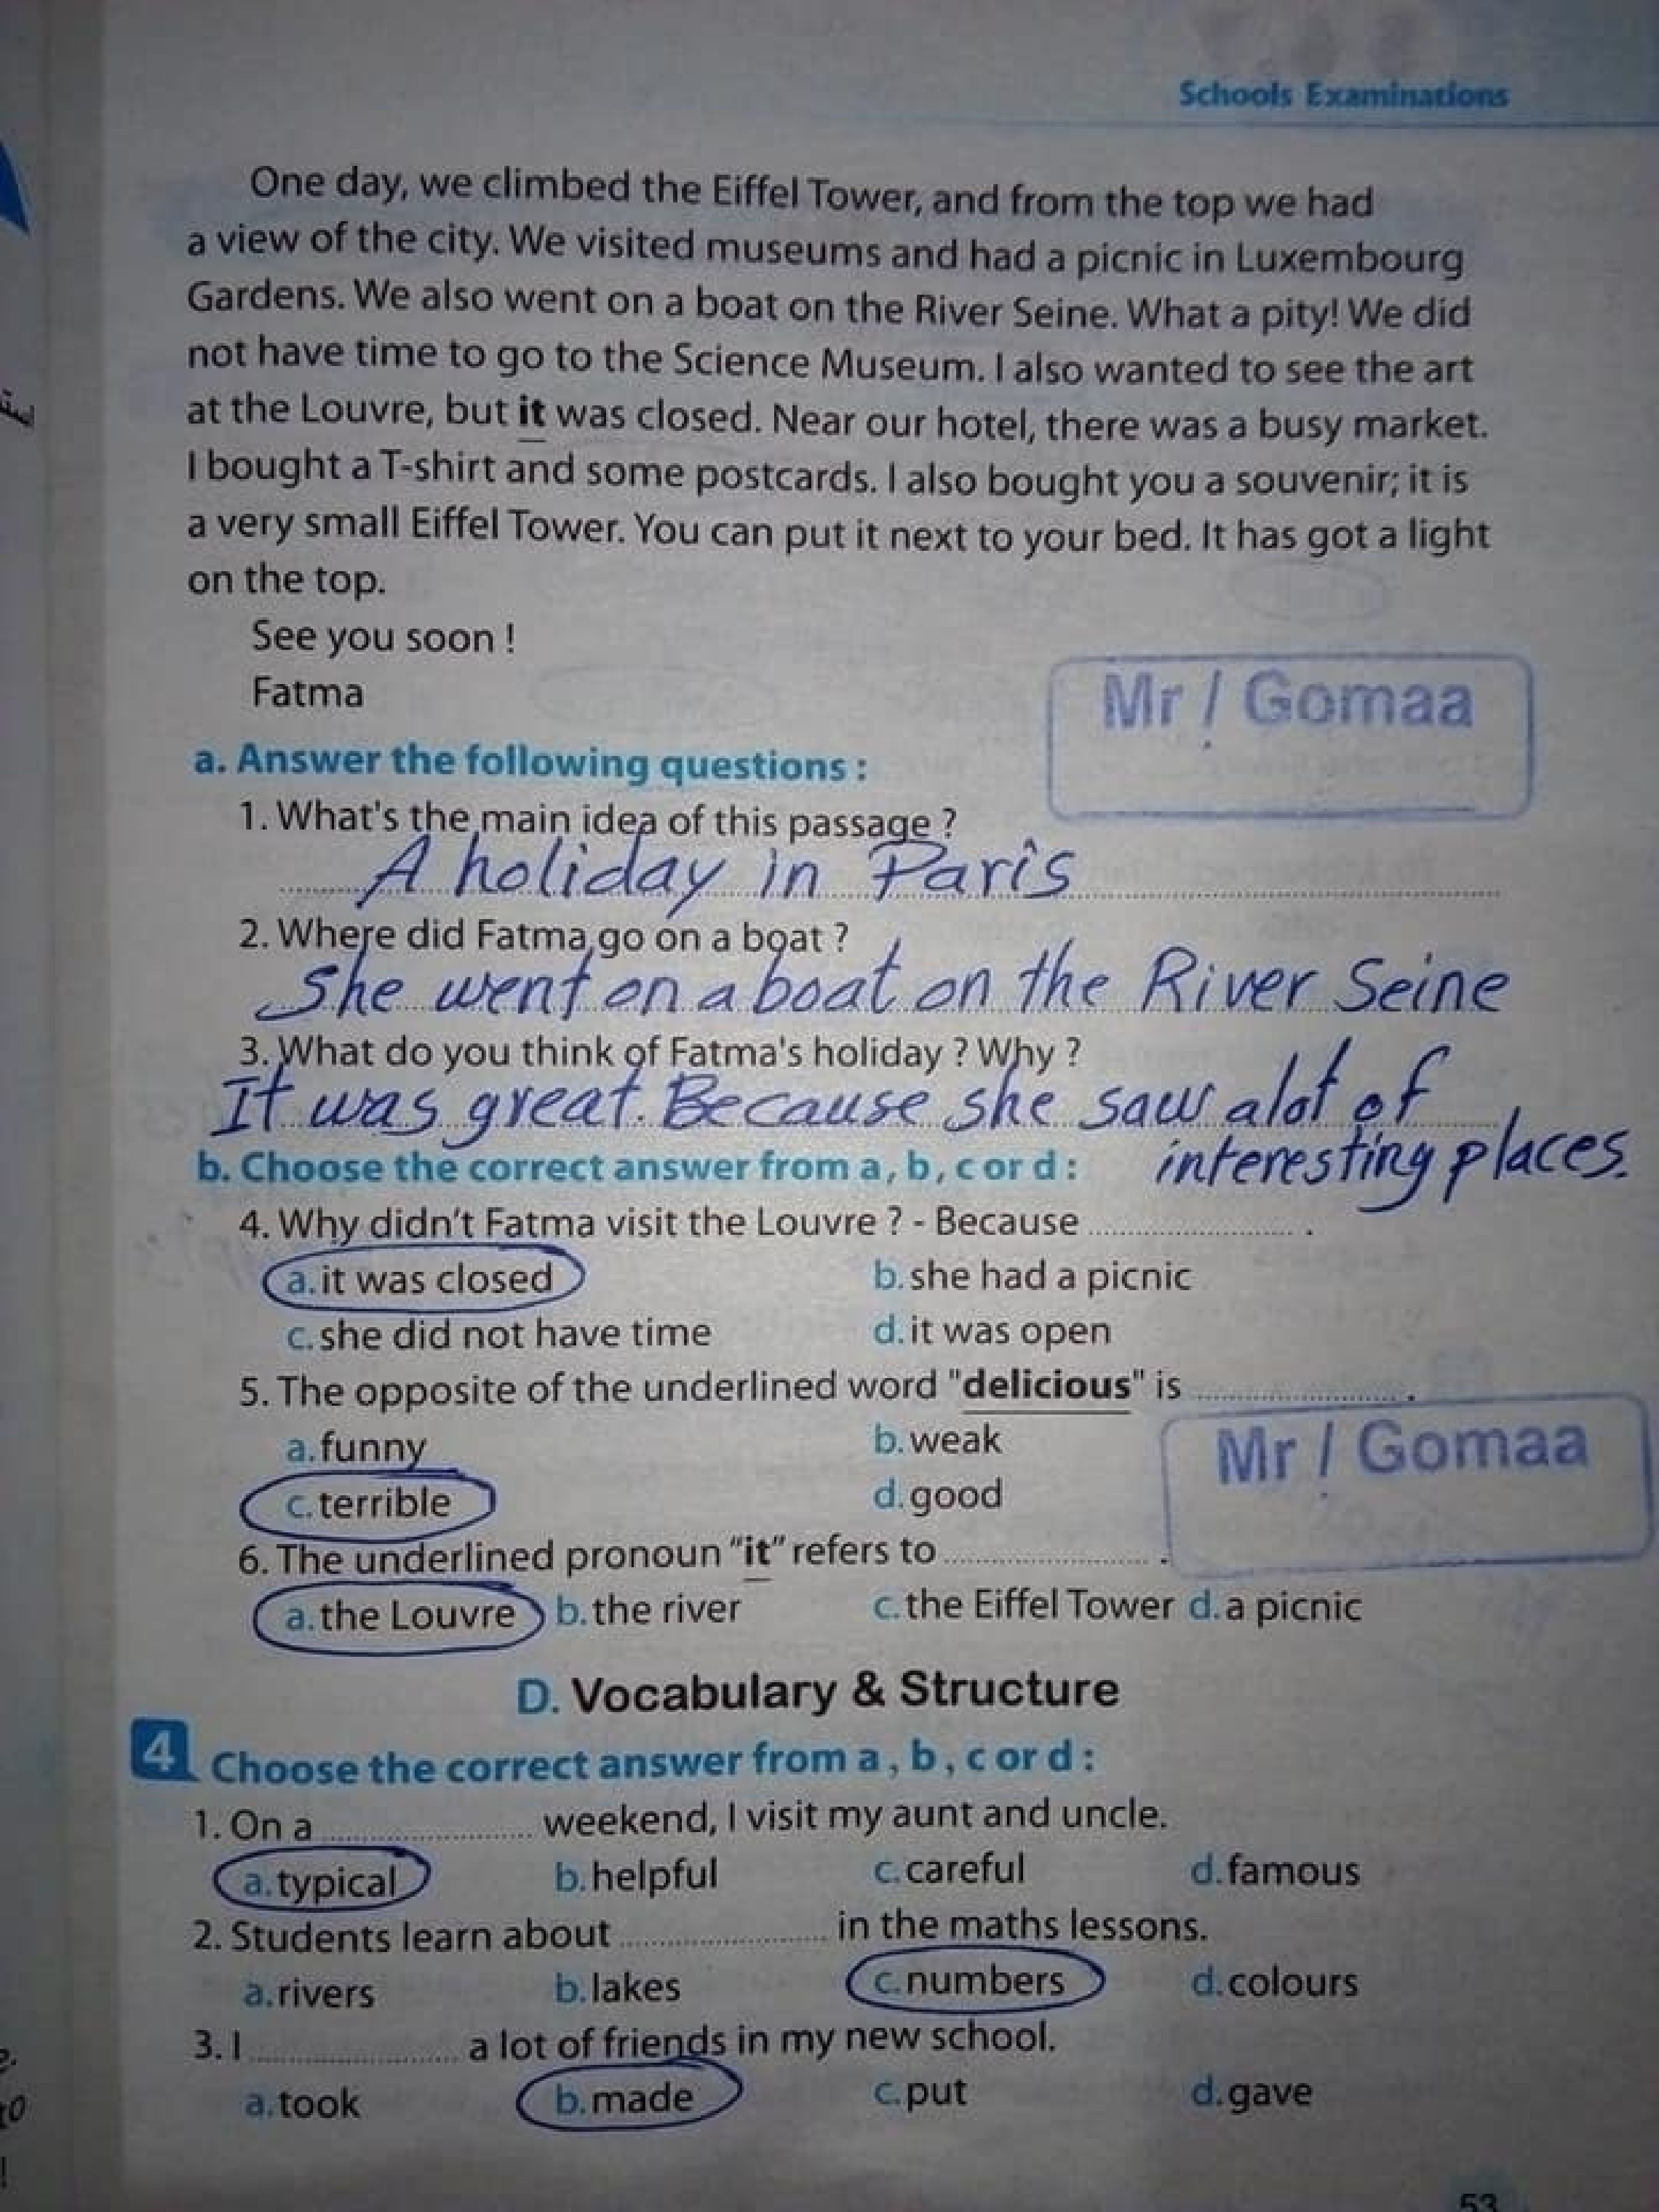 Schools Examinations
One day, we climbed the Eiffel Tower, and from the top we had
a view of the city. We visited museums and had a picnic in Luxembourg
Gardens. We also went on a boat on the River Seine. What a pity! We did
not have time to go to the Science Museum. I also wanted to see the art
at the Louvre, but it was closed. Near our hotel, there was a busy market.
I bought a T-shirt and some postcards. I also bought you a souvenir; it is
a very small Eiffel Tower. You can put it next to your bed. It has got a light
on the top.
See you soon !
Fatma
Mr / Gomaa
a. Answer the following questions :
1. What's the main idea of this passage ?
A holiday in Paris
2. Where did Fatma go on a boat ?
She went on a boat on the River Seine
3. What do you think of Fatma's holiday ? Why ?
It was great. Because she saw alot of
interesting places.
b. Choose the correct answer from a, b, c or d :
4. Why didn't Fatma visit the Louvre ? - Because .................... .
a. it was closed b. she had a picnic
c. she did not have time d. it was open
5. The opposite of the underlined word "delicious" is .................... .
a. funny b. weak
Mr / Gomaa
c. terrible d. good
6. The underlined pronoun "it" refers to .................... .
a. the Louvre b. the river c. the Eiffel Tower d. a picnic
D. Vocabulary & Structure
4 Choose the correct answer from a, b, c or d :
1. On a .................... weekend, I visit my aunt and uncle.
a. typical b. helpful c. careful d. famous
2. Students learn about .................... in the maths lessons.
a. rivers b. lakes c. numbers d. colours
3. I .................... a lot of friends in my new school.
a. took b. made c. put d. gave
53